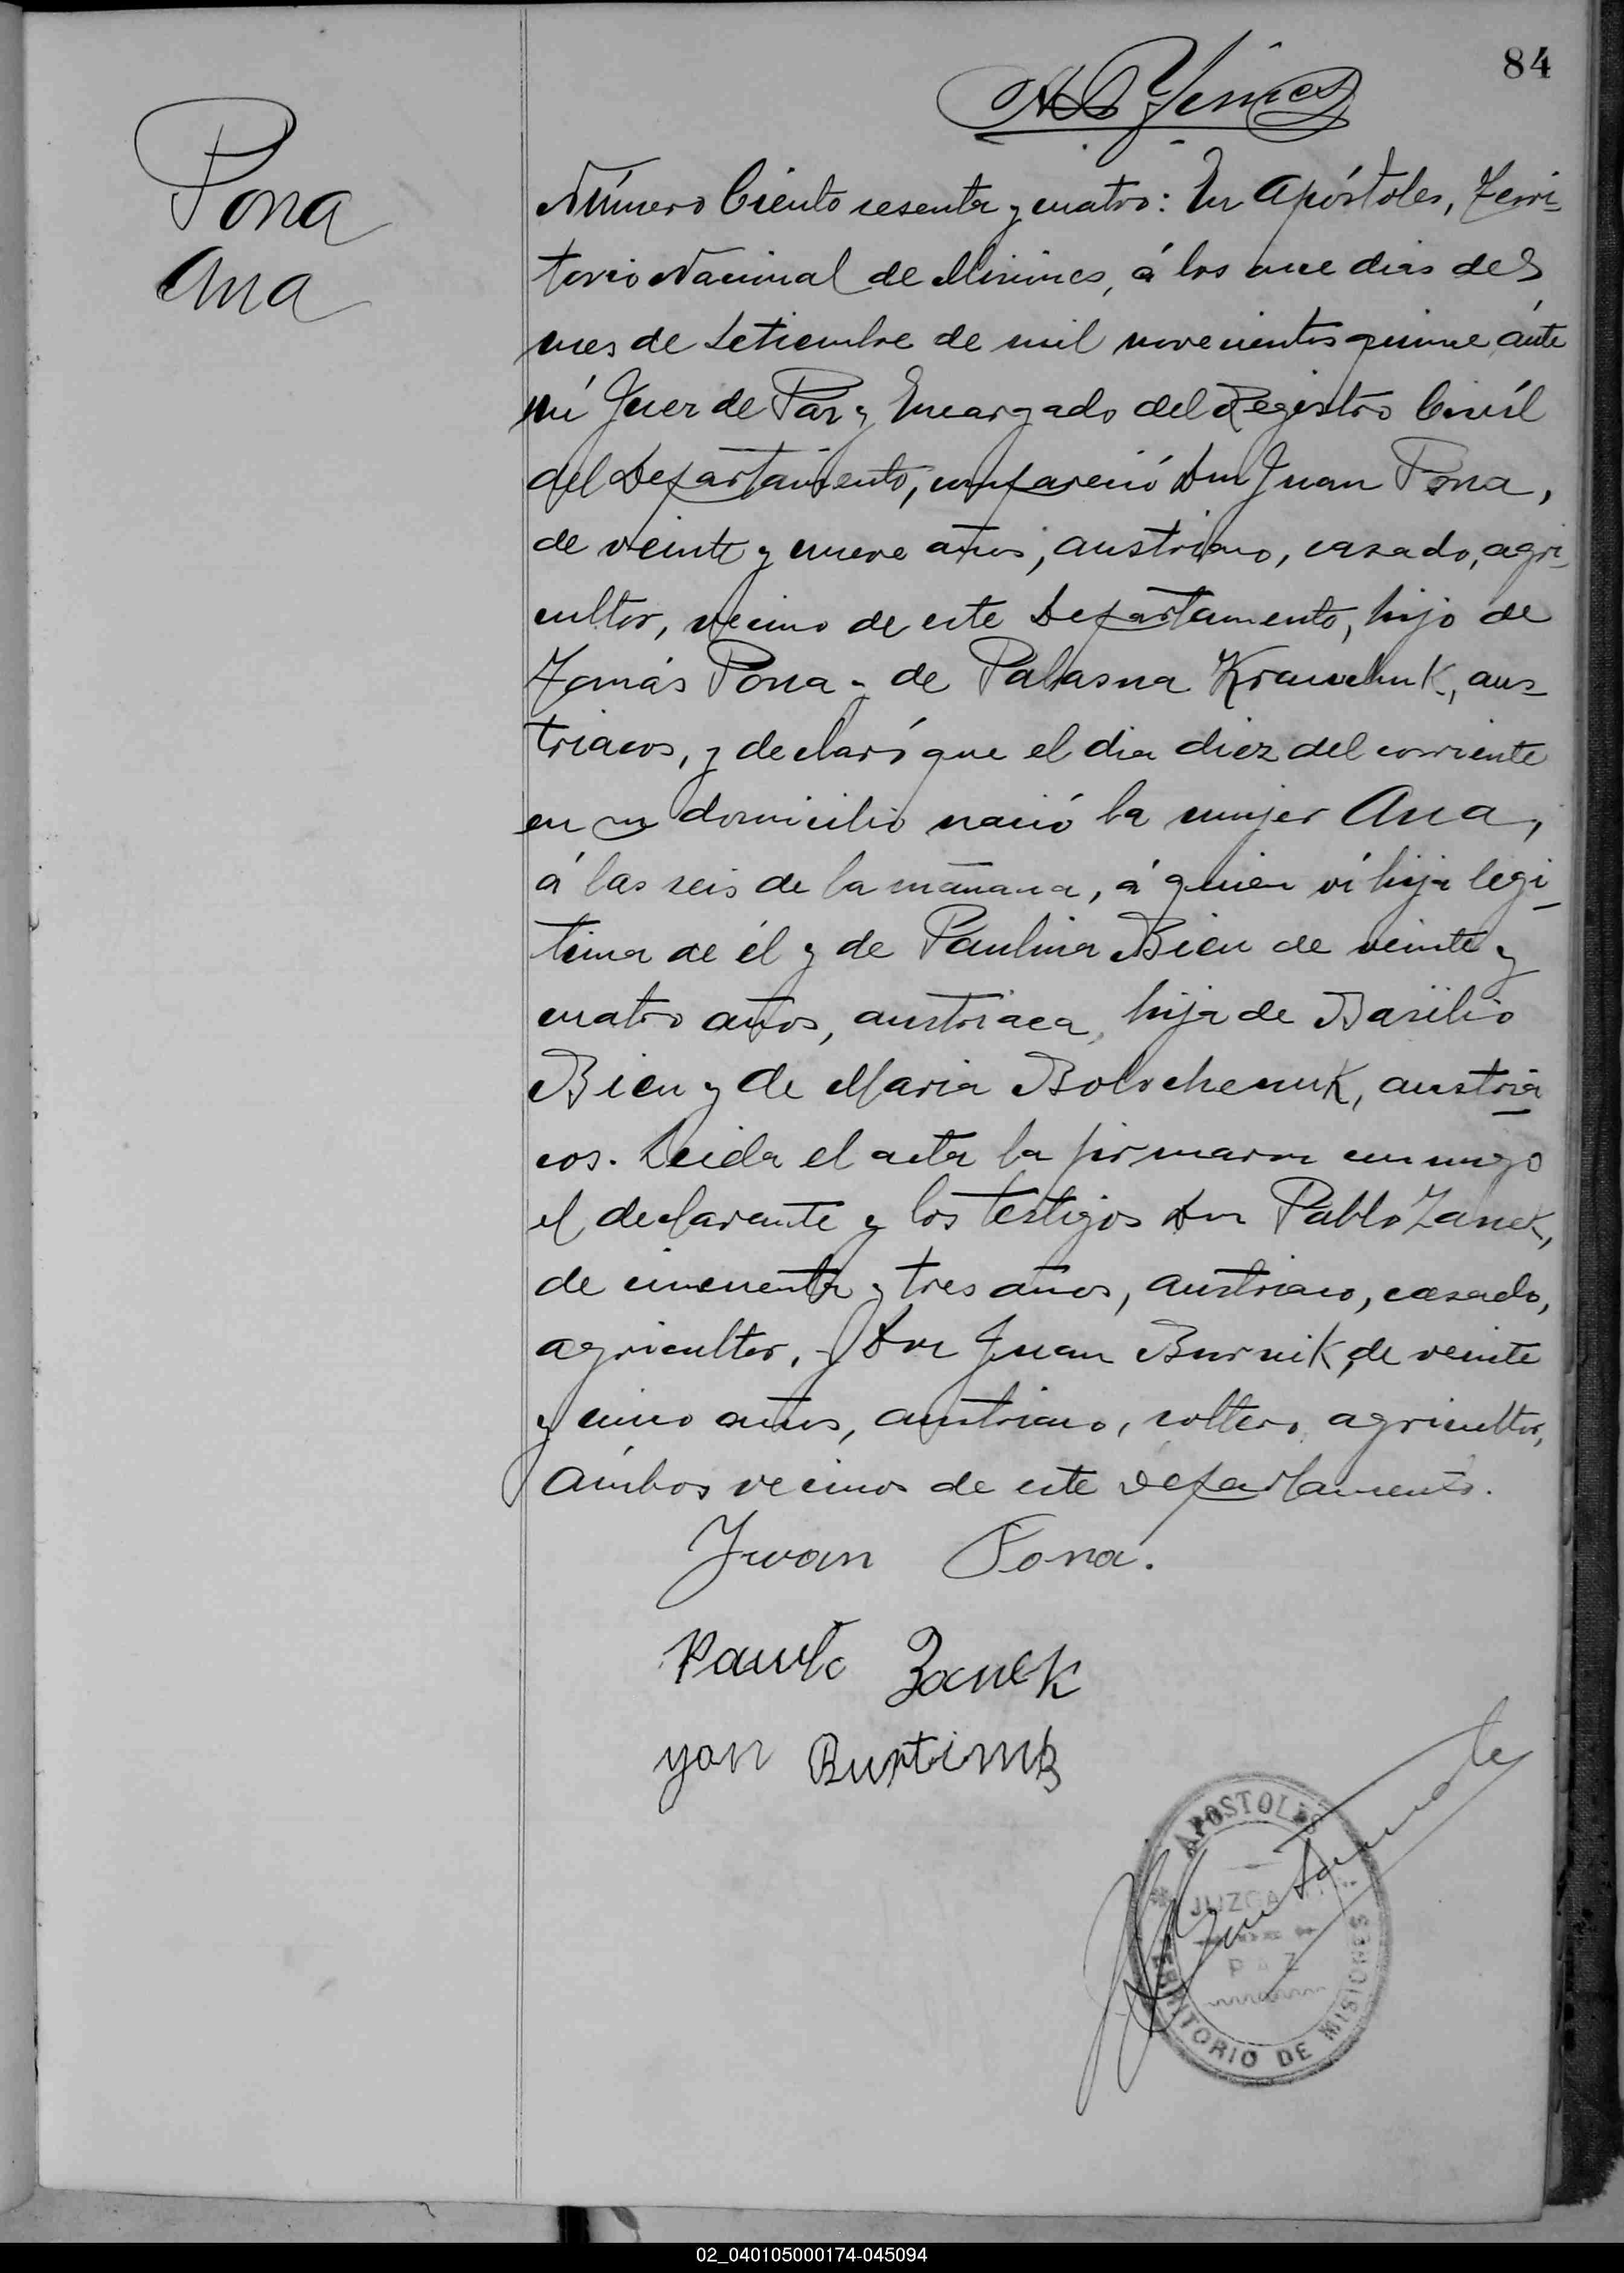 84
Pona
Ana
Número Ciento sesenta y cuatro: En Apóstoles, Terri-
torio Nacional de Misiones, á los once dias del
mes de Setiembre de mil novecientos quince, ánte
mí Juez de Paz y Encargado del Registro Civíl
del Departamento, compareció Don Juan Pona,
de veinte y nueve años, austriaco, casado, agri-
cultor, vecino de este Departamento, hijo de
Tomás Pona y de Palasna Krawchuk, aus-
triacos, y declaró que el dia diez del corriente
en su domicilio nació la mujer Ana,
á las seis de la mañana, á quien ví hija legi-
tima de él y de Paulina Bien de veinte y
cuatro años, austriaca, hija de Basilio
Bien y de Maria Bolochenuk, austria-
cos. Leida el acta la firmaron conmigo
el declarante y los testigos Don Pablo Zanek,
de cincuenta y tres años, austriaco, casado,
agricultor, y Don Juan Burnik, de veinte
y cinco años, austriaco, soltero, agricultor,
ámbos vecinos de este Departamento.
Jwan Pona.
Pawlo Zanek
yan
APOSTOLES
JUZGADO DE
PAZ
TERRITORIO DE MISIONES
02_040105000174-045094